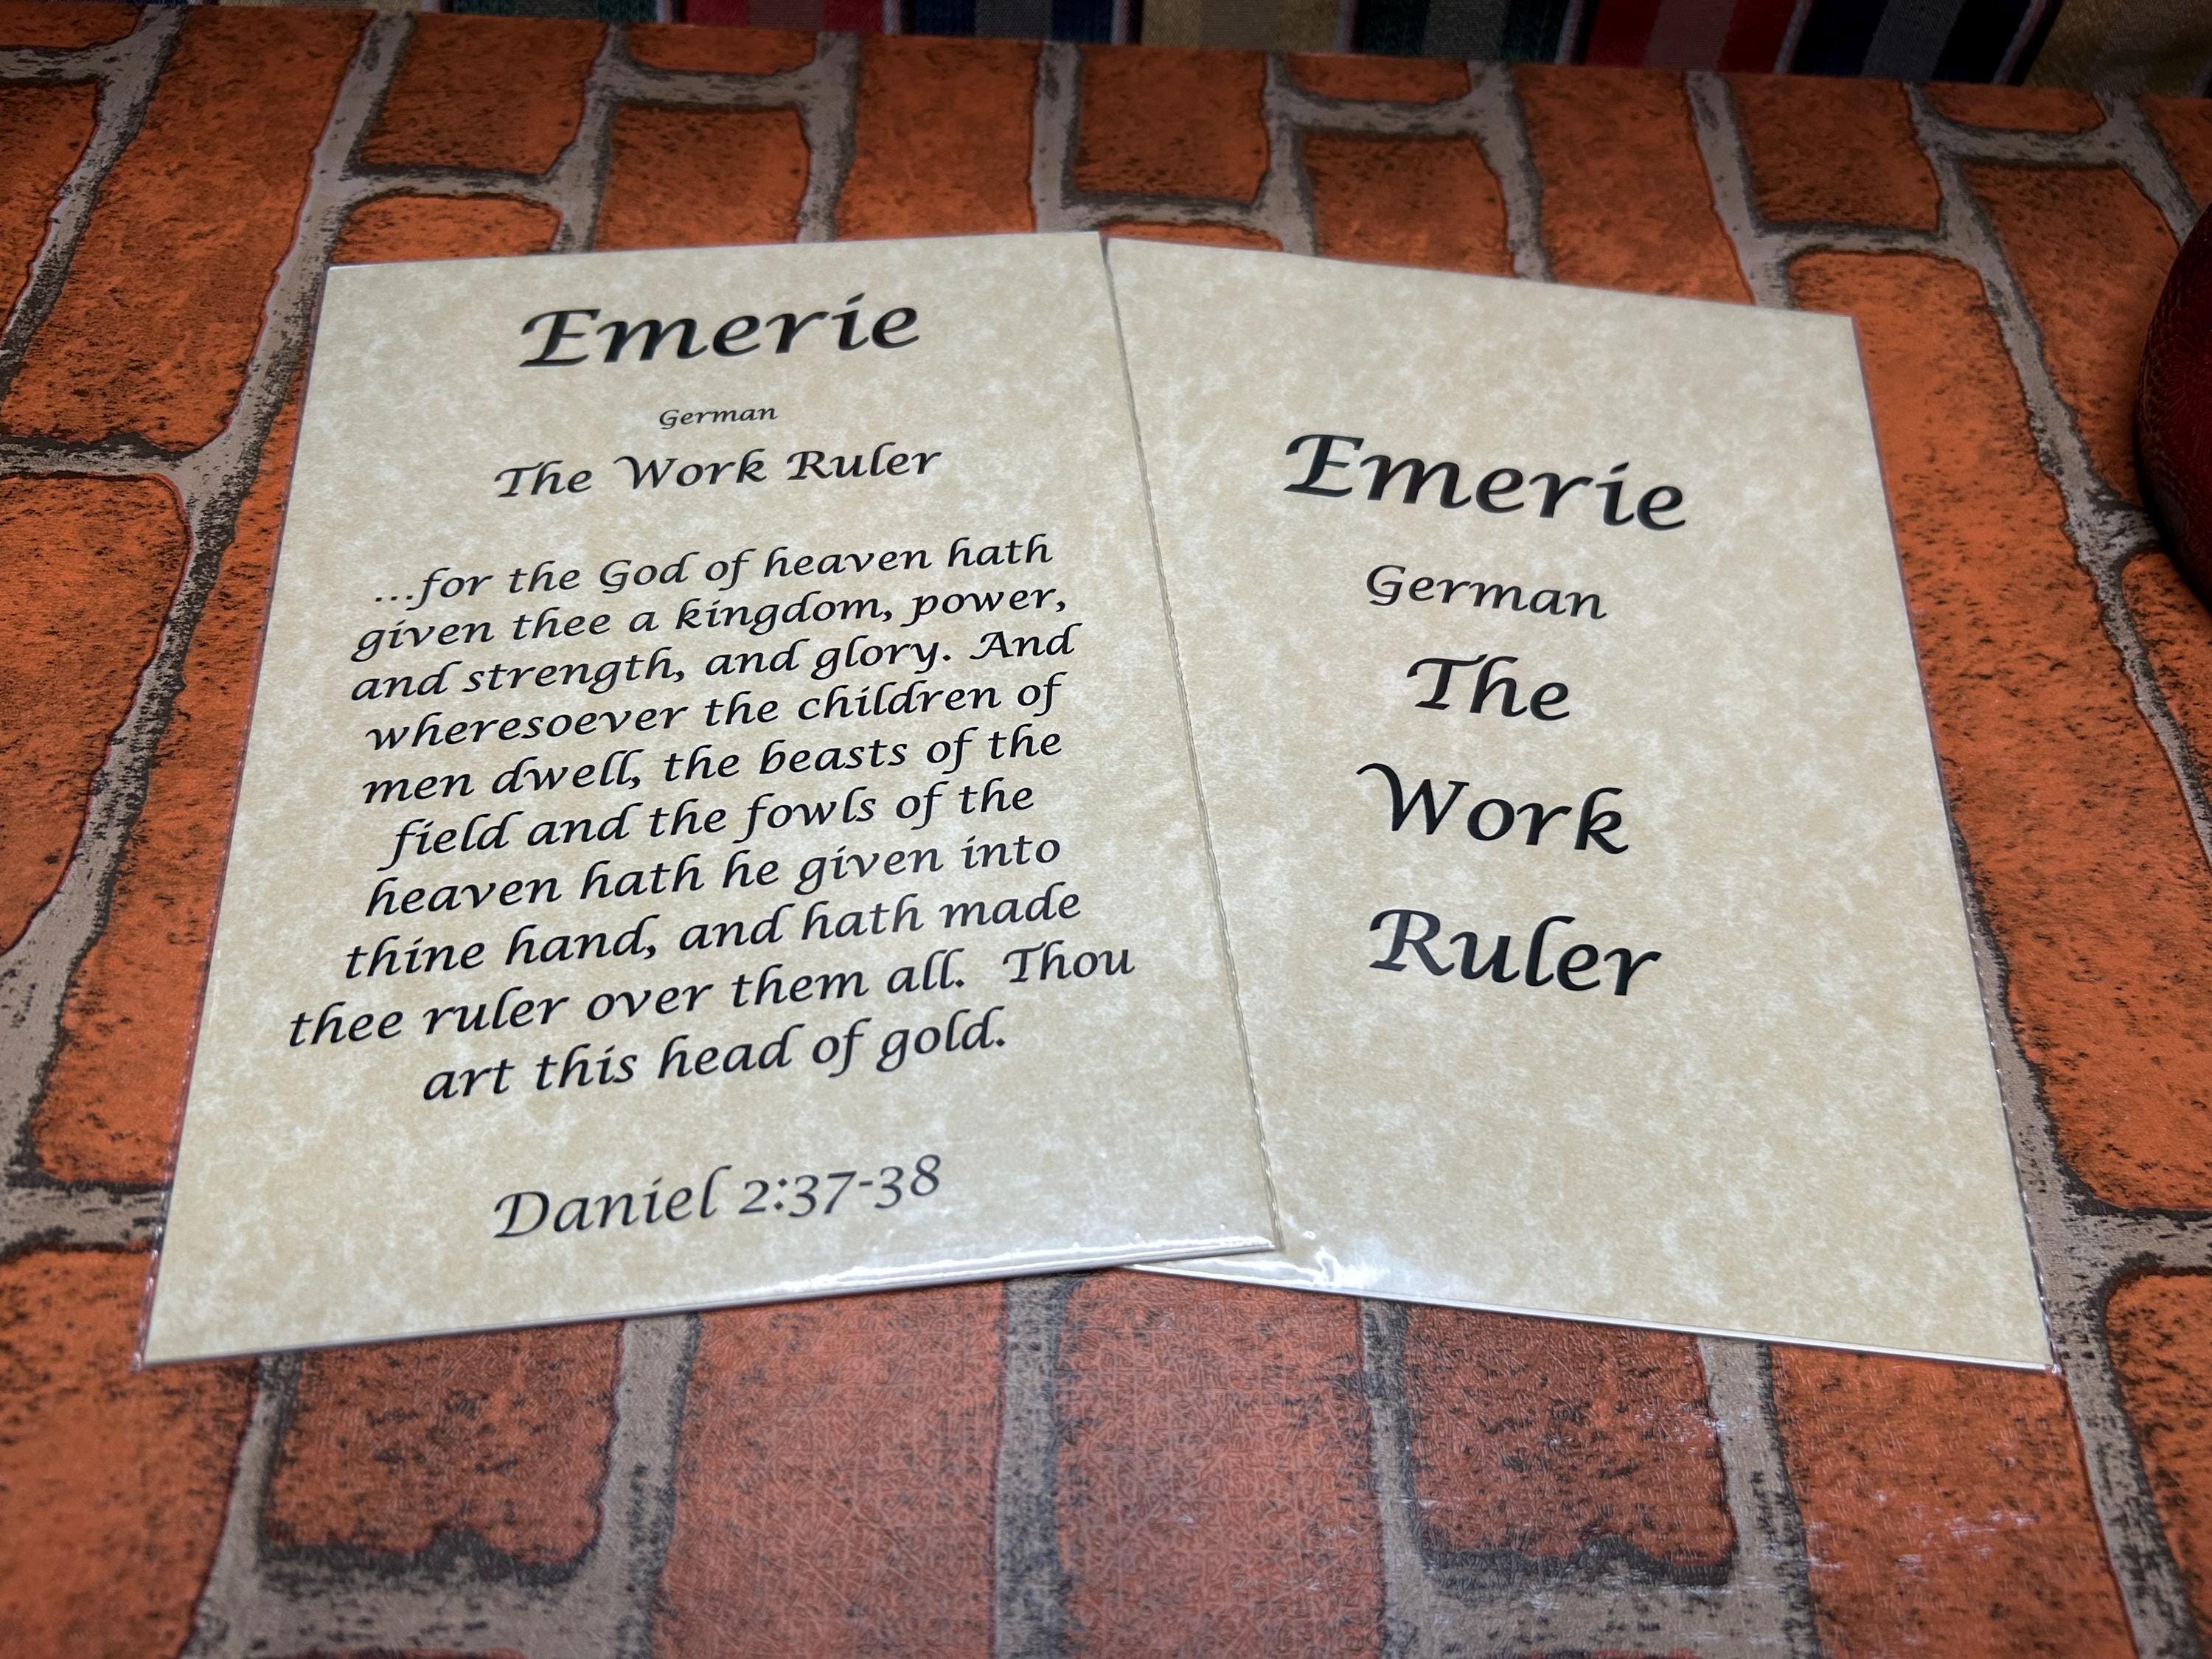 Emerie
German
The Work Ruler
...for the God of heaven hath
given thee a kingdom, power,
and strength, and glory. And
wheresoever the children of
men dwell, the beasts of the
field and the fowls of the
heaven hath he given into
thine hand, and hath made
thee ruler over them all. Thou
art this head of gold.
Daniel 2:37-38
Emerie
German
The
Work
Ruler